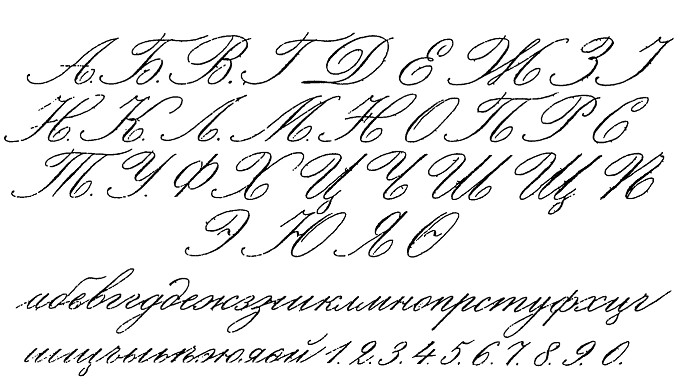 А. Б. В. Г Д Е Ж З І
И. К. Л. М. Н О П Р С
Т. У. Ф Х Ц Ч Ш Щ Ѣ
Э Ю Я Ѳ
абвгдежзиклмнопрстуфхцч
шщъыьѣэюяѳй 1. 2. 3. 4. 5. 6. 7. 8. 9. 0.